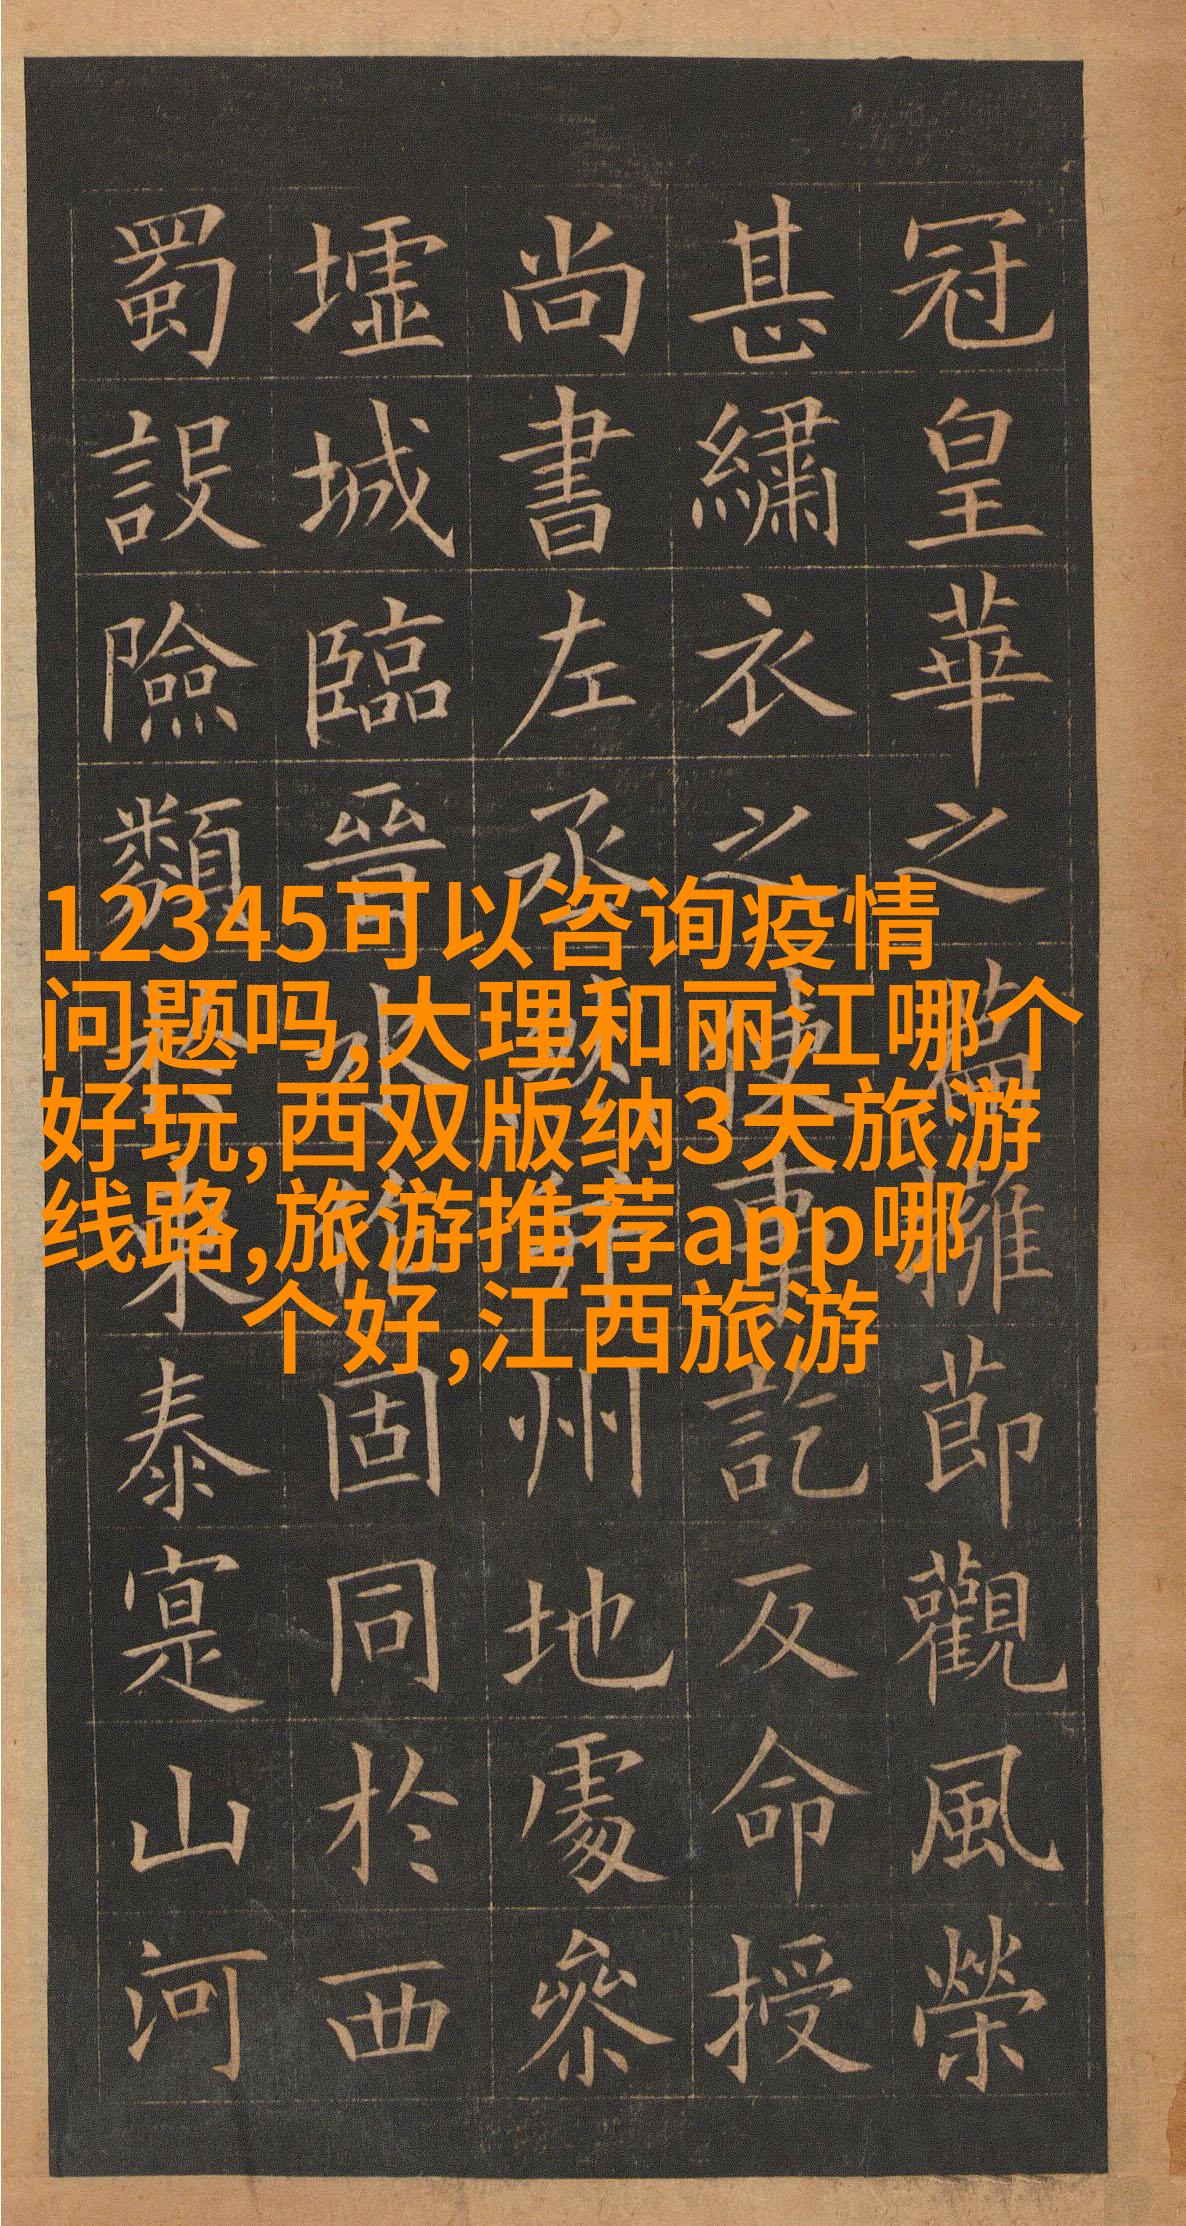 冠皇華之擁節觀風榮
甚繡衣之事訖反命授
尚書左丞州地處參
墟城臨晉水作固同於西
蜀設險類東泰寔山河
12345可以咨询疫情
问题吗,大理和丽江哪个
好玩,西双版纳3天旅游
线路,旅游推荐app哪
个好,江西旅游